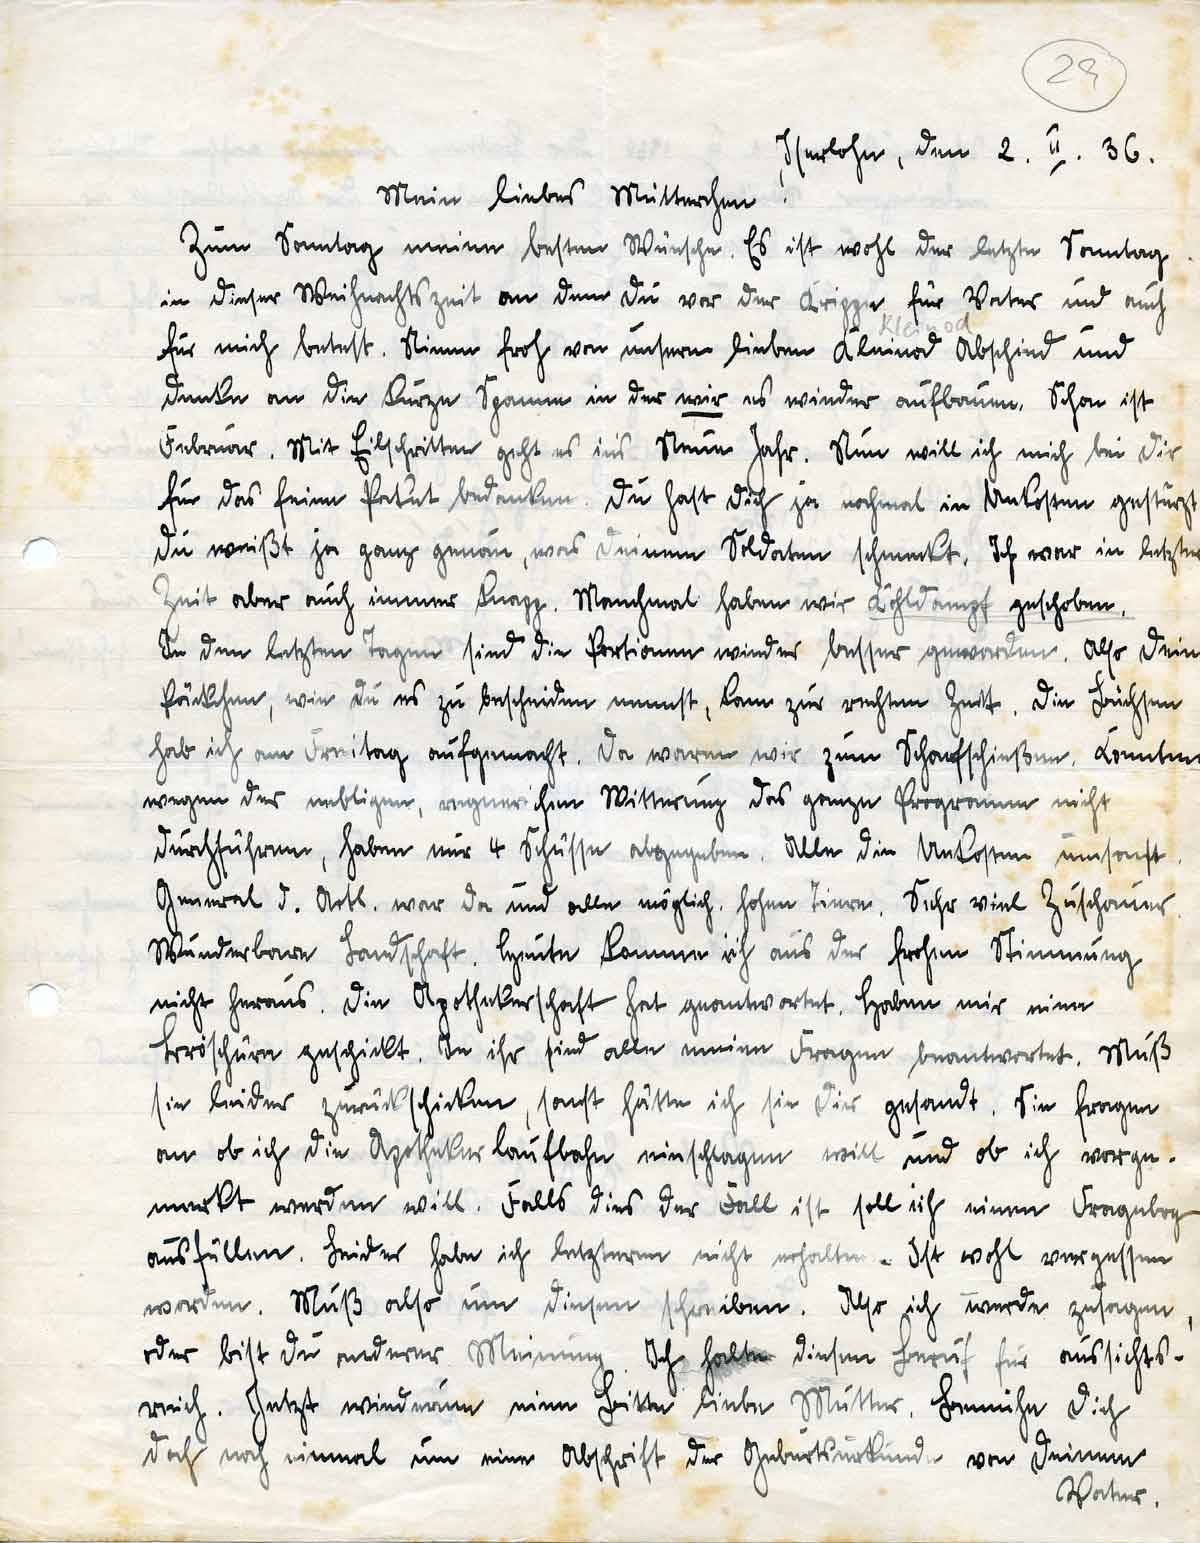 29
Iserlohn, den 2. II. 36.
Mein liebes Mütterchen!
Zum Sonntag meine besten Wünsche. Es ist wohl der letzte Sonntag
in dieser Weihnachtszeit an dem Du vor der Krippe für Vater und auch
Kleinod
für mich betest. Nimm froh von unserm lieben Kleinod Abschied und
denke an die kurze Spanne in der wir es wieder aufbauen. Schon ist
Februar. Mit Eilschritten geht es ins Neue Jahr. Nun will ich mich bei Dir
für das feine Paket bedanken. Du hast Dich ja nochmal in Unkosten gestürzt
Du weißt ja ganz genau, was Deinem Soldaten schmeckt. Ich war in letzter
Zeit aber auch immer knapp. Manchmal haben wir Kohldampf geschoben.
In den letzten Tagen sind die Portionen wieder besser geworden. Also Dein
Päckchen, wie Du es zu bescheiden nennst, kam zur rechten Zeit. Die Büchsen
hab ich am Freitag aufgemacht. Da waren wir zum Scharfschießen. Konnten
wegen der nebligen, regnerichen Witterung das ganze Programm nicht
durchführen, haben nur 4 Schüsse abgegeben. Alle die Unkosten umsonst.
General d. Artl. war da und alle möglich. hohen Tiere. Sehr viel Zuschauer.
Wunderbare Landschaft. Heute komme ich aus der frohen Stimmung
nicht heraus. Die Apothekerschaft hat geantwortet. Haben mir eine
Broschüre geschickt. In ihr sind alle meine Fragen beantwortet. Muß
sie leider zurückschicken, sonst hätte ich sie Dir gesandt. Sie fragen
an ob ich die Apothekerlaufbahn einschlagen will und ob ich vorge-
merkt werden will. Falls dies der Fall ist soll ich einen Fragebog
ausfüllen. Leider habe ich letzteren nicht erhalten. Ist wohl vergessen
worden. Muß also um diesen schreiben. Also ich werde zusagen,
oder bist Du anderer Meinung. Ich halte diesen Beruf für aussichts-
reich. Jetzt wiederum eine Bitte liebe Mutter. Bemühe Dich
doch noch einmal um eine Abschrift der Geburtsurkunde von Deinem
Vater.